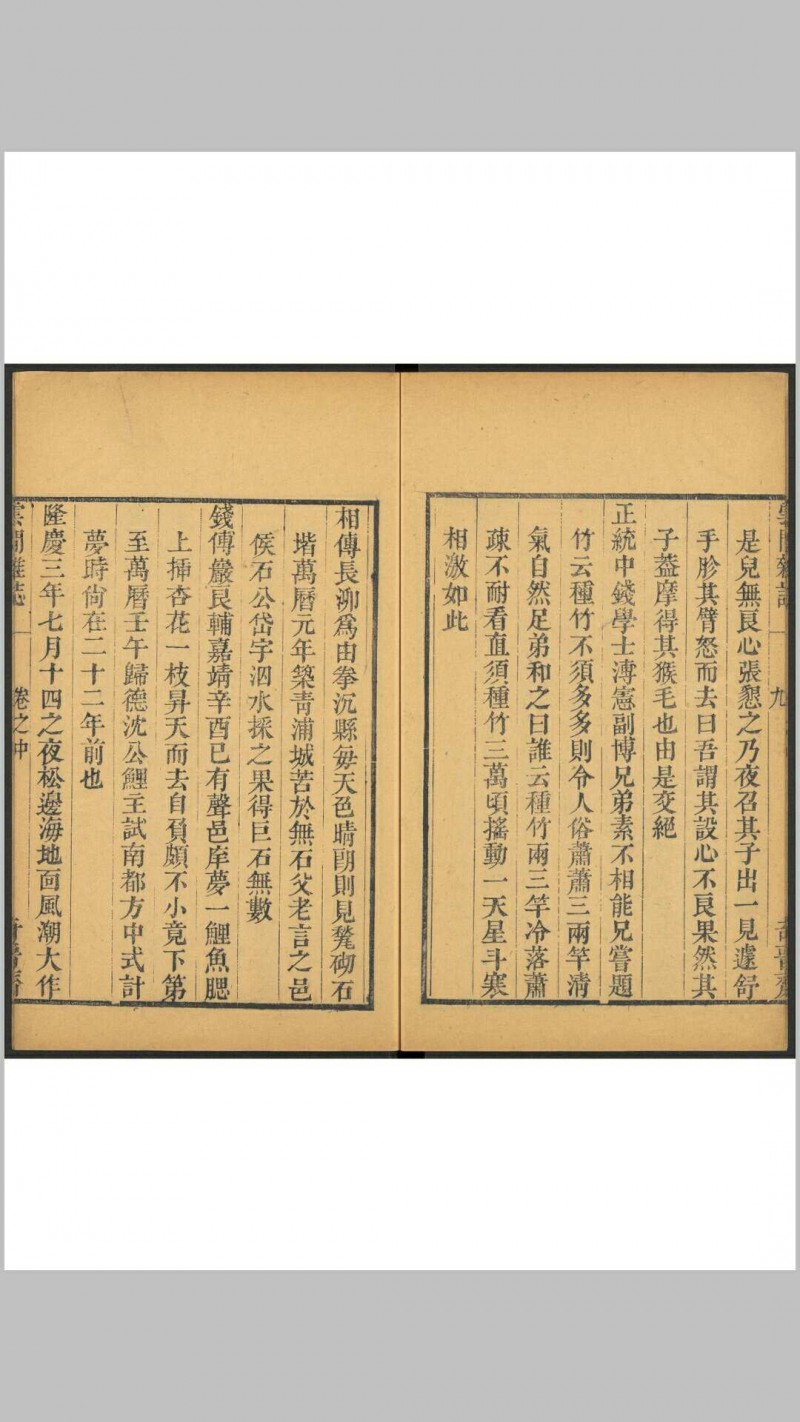 是兒無良心張懇之乃夜召其子出一見遽舒
手胗其臂怒而去曰吾謂其設心不良果然其
子葢摩得其猴毛也由是交絕
正統中錢學士溥憲副博兄弟素不相能兄嘗題
竹云種竹不須多多則令人俗蕭蕭三兩竿清
氣自然足弟和之曰誰云種竹兩三竿冷落蕭
疎不耐看直須種竹三萬頃搖動一天星斗寒
相激如此
九
相傳長泖爲由拳沉縣每天色晴朗則見甃砌石
堦萬曆元年築青浦城苦於無石父老言之邑
侯石公岱字泗水採之果得巨石無數
錢傅巖良輔嘉靖辛酉已有聲邑庠夢一鯉魚腮
上揷杏花一枝昇天而去自負頗不小竟下第
至萬曆壬午歸德沈公鯉主試南都方中式計
夢時尙在二十二年前也
隆慶三年七月十四之夜松邊海地面風潮大作
雲間雜誌
卷之中